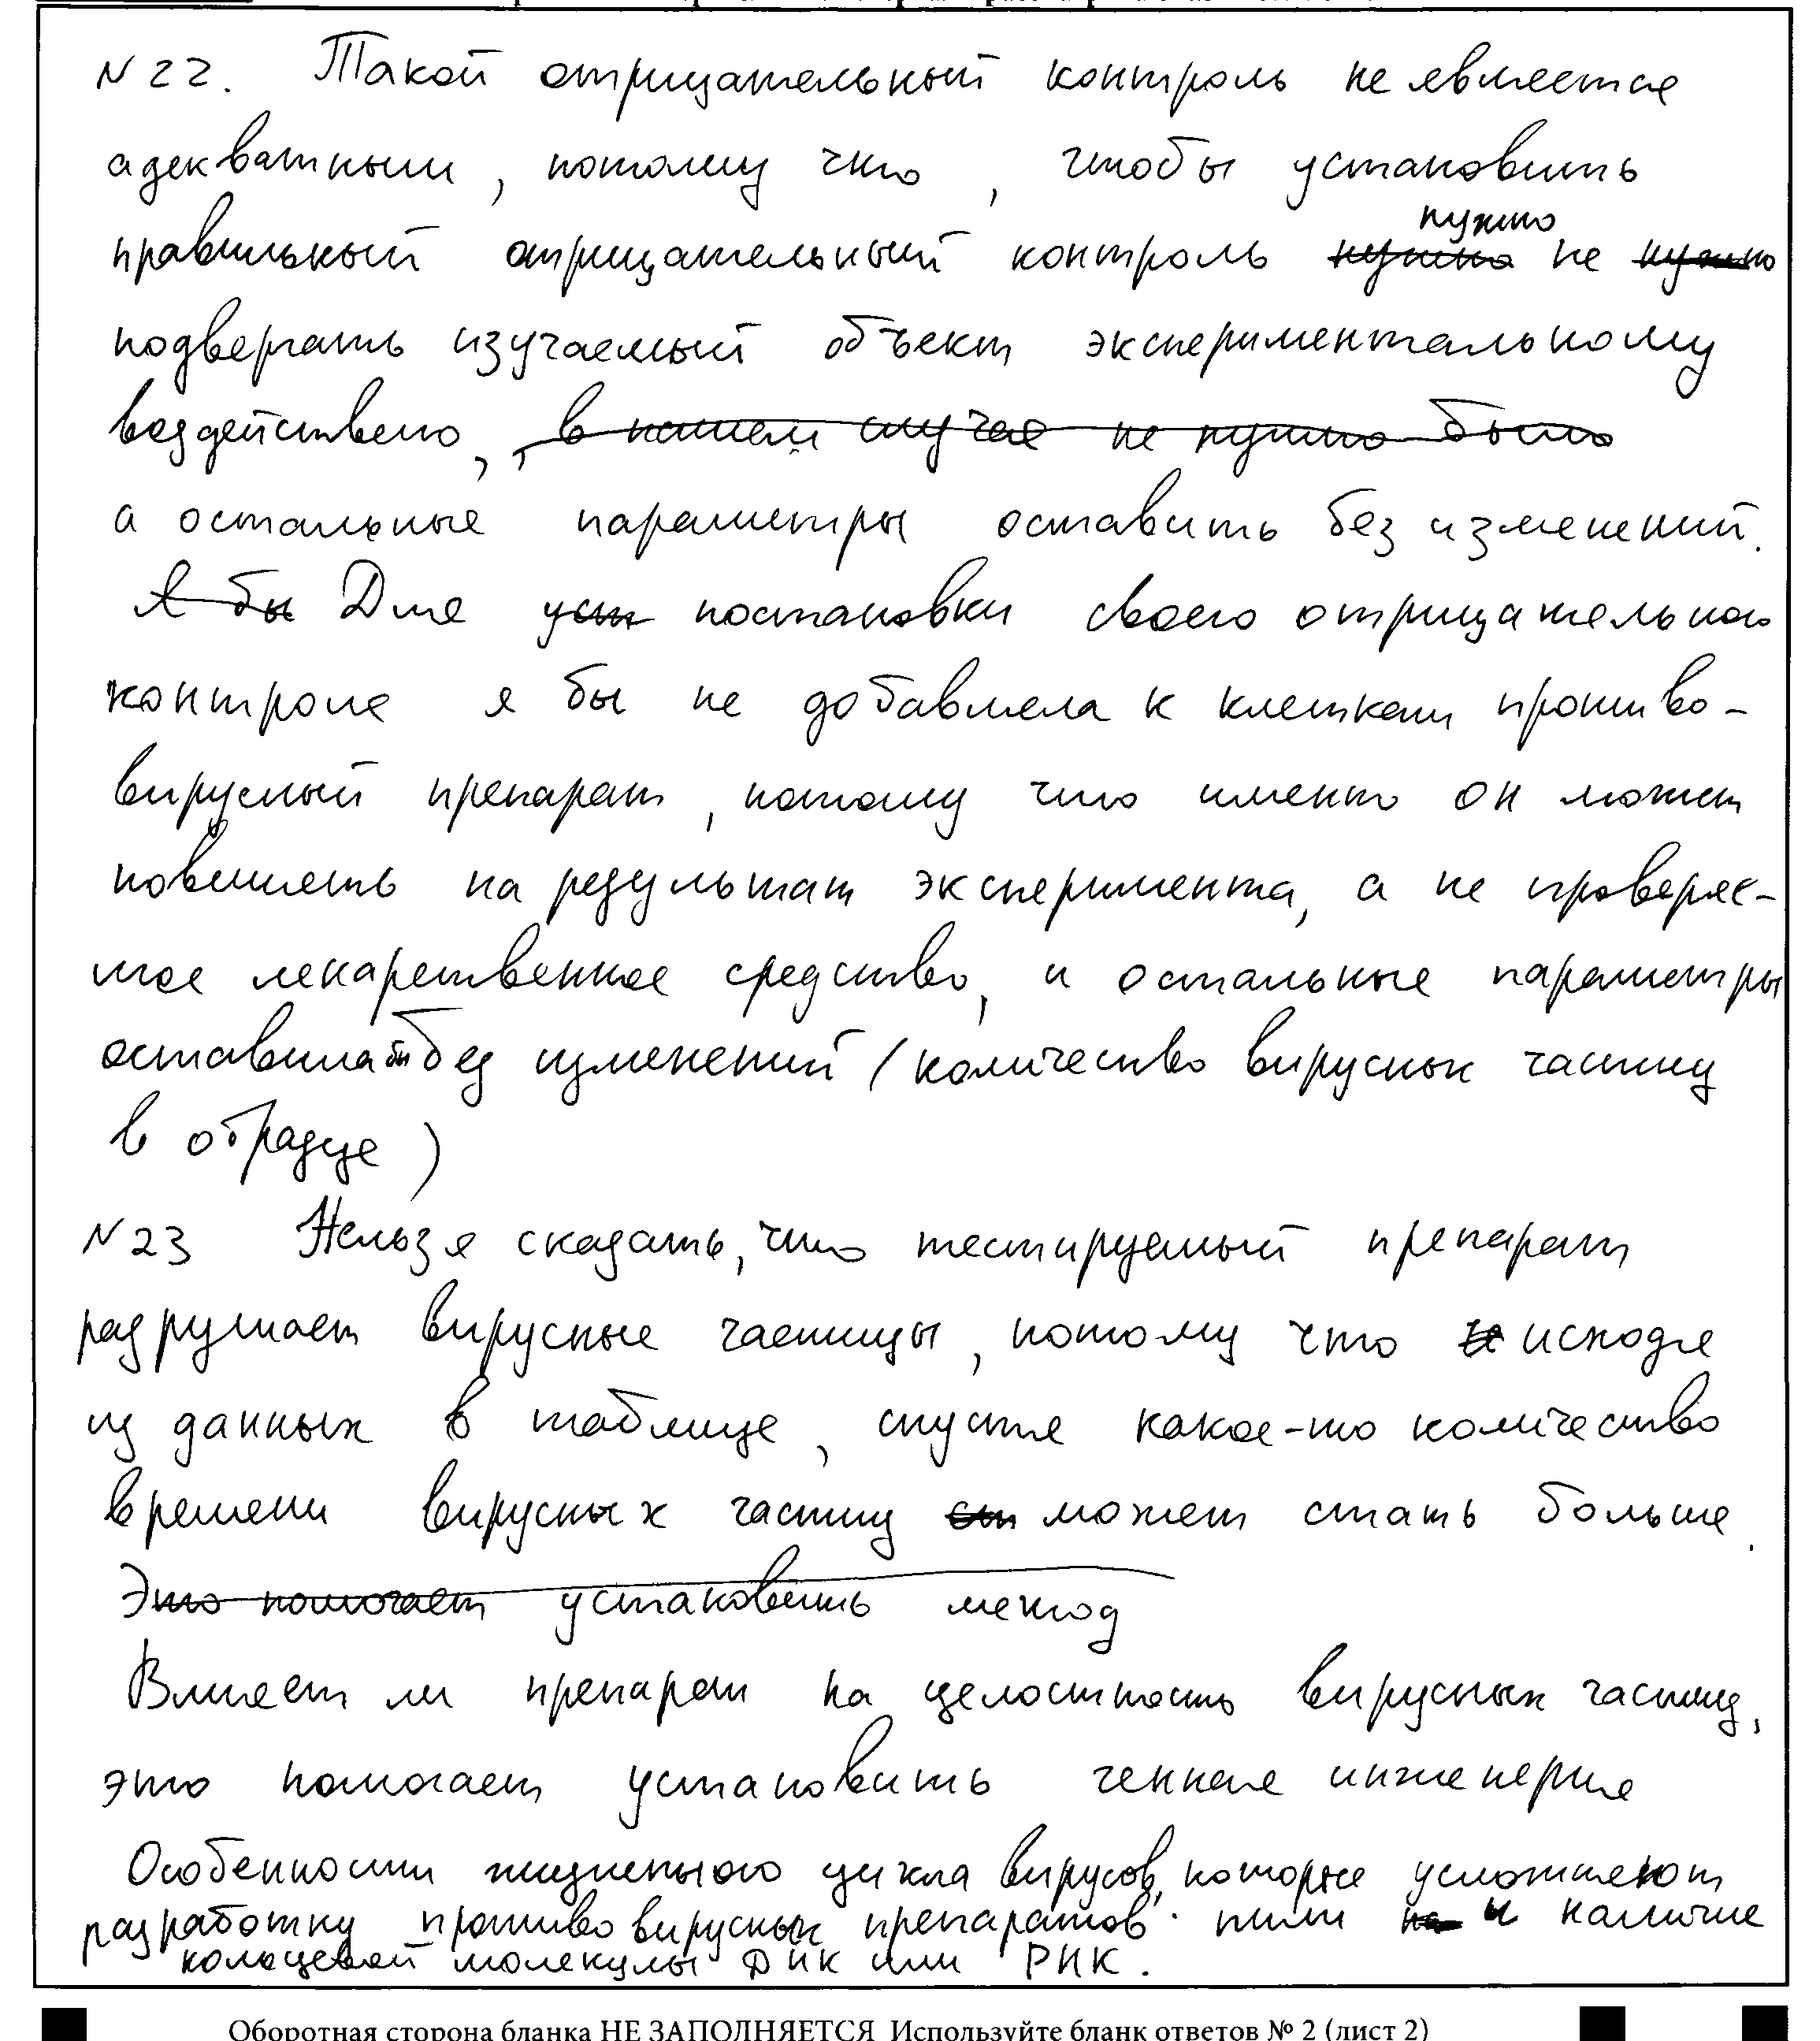 N 22. Такой отрицательный контроль не является
адекватным, потому что, чтобы установить
нужно
правильный отрицательный контроль нужно не нужно
подвергать изучаемый объект экспериментальному
воздействию, в нашем случае не нужно было
а остальные параметры оставить без изменений.
Я бы Для уст постановки своего отрицательного
контроля я бы не добавляла к клеткам противо-
вирусный препарат, потому что именно он может
повлиять на результат эксперимента, а не проверяе-
мое лекарственное средство, и остальные параметры
оставила бы без изменений (количество вирусных частиц
в образце)
N 23 Нельзя сказать, что тестируемый препарат
разрушает вирусные частицы, потому что исходя
из данных в таблице, спустя какое-то количество
времени вирусных частиц ст может стать больше.
Это помогает установить метод
Влияет ли препарат на целостность вирусных частиц,
это помогает установить генная инженерия
Особенности жизненого цикла вирусов, которые усложняют
разработку противовирусных препаратов: пили на и наличие
колоцевой молекулы ДНК или РНК.
Оборотная сторона бланка НЕ ЗАПОЛНЯЕТСЯ. Используйте бланк ответов № 2 (лист 2)